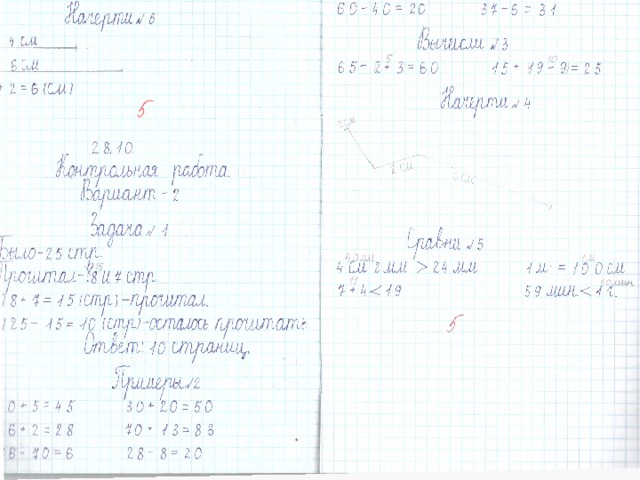 Начерти № 6
4 см
6 см
+ 2 = 6 (см)
5
28.10.
Контрольная работа.
Вариант - 2
Задача № 1
Было - 25 стр.
Прочитал - 8 и 7 стр.
1) 8 + 7 = 15 (стр) - прочитал.
) 25 - 15 = 10 (стр) - осталось прочитать
Ответ: 10 страниц.
Примеры № 2
0 + 5 = 45 30 + 20 = 50
6 + 2 = 28 70 + 13 = 83
6 - 70 = 6 28 - 8 = 20
60 - 40 = 20 37 - 6 = 31
Вычисли № 3
5 10
65 - (2 + 3 = 60 15 + (19 - 9) = 25
Начерти № 4
2 см
Сравни № 5
4 см 2 мм > 24 мм 1 м = 100 см
11
7 + 4 < 19 59 мин < 1 ч.
5